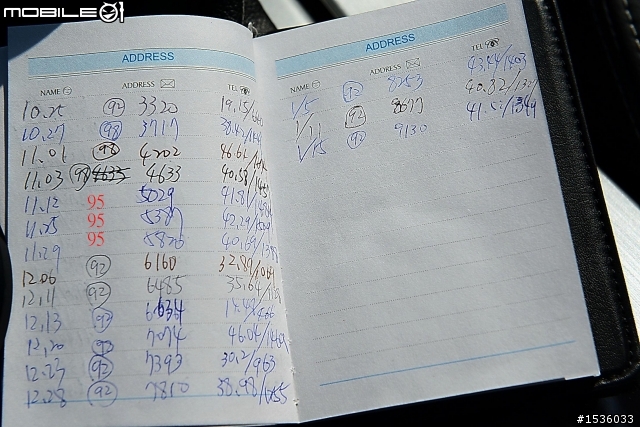 MOBILE01
ADDRESS
NAME ADDRESS TEL
10.25 92 3320 19.15/
10.27 98 3717 38.42/
11.01 98 4202 46.62/
11.03 98 4633 4633 40.58/
11.12 95 5029 41.81/
11.25 95 5387 42.29/
11.29 95 5826 40.69/
12.06 92 6160 32.89/
12.11 92 6485 35.64/
12.13 92 6634 /466
12.20 92 7074 46.04/
12.23 92 7393 30.2/963
12.28 92 7810 38.98/1255
ADDRESS
NAME ADDRESS TEL
1/5 92 8253 43.44/1403
1/11 92 8677 40.32/132
1/15 92 9130 /1349
#1536033